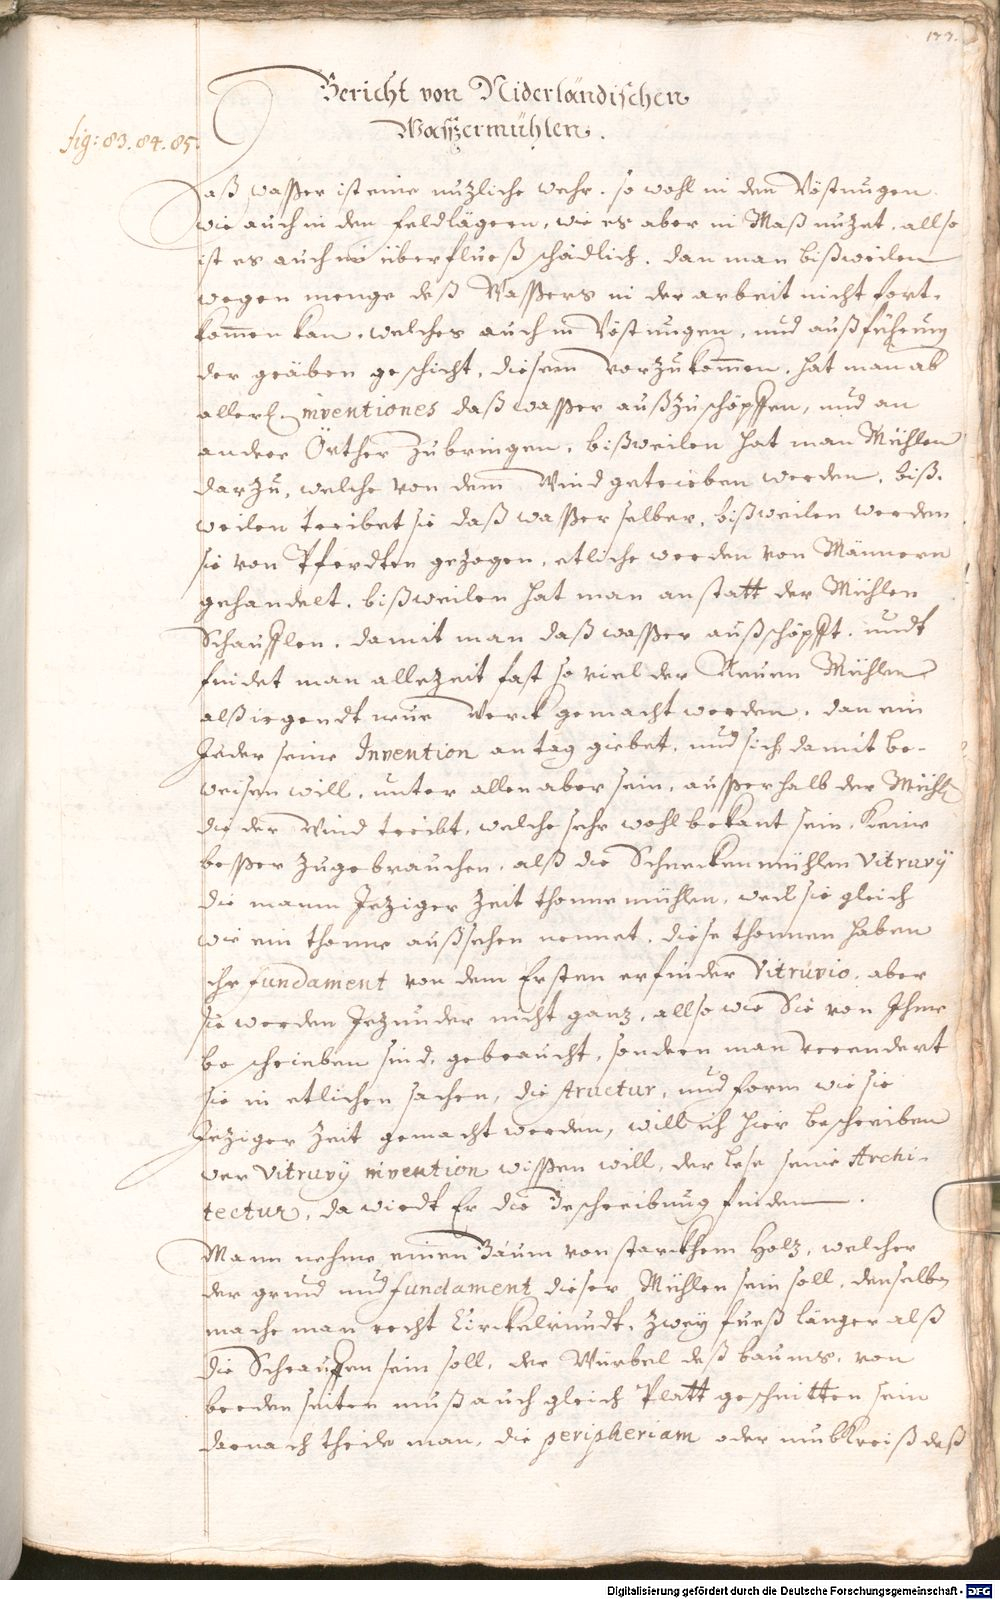 177.
Bericht von Niderländischen
Wasszermühlen.
fig: 83. 84. 85.
Daß wasser ist eine nuzliche wehr. so wohl in den Vöstungen
wie auch in den feldlägern, wie es aber in Maß nuzet, allso
ist es auch im überflueß schädlich. dan man bißweilen
wegen menge deß Wassers in der arbeit nicht fort-
kommen kan, welches auch in Vöstungen, und außführung
der gräben geschicht, diesem vorzukommen, hat man ab
allerl. inventiones daß wasser außzuschöpffen, und an
andere Örther zubringen, bißweilen hat man Mühlen
darzu, welche von dem Wind getrieben werden, biß-
weilen treibet sie daß wasser selber, bißweilen werden
sie von Pferdten gezogen, etliche werden von Männern
gehandelt. bißweilen hat man anstatt der Mühlen
Schaufflen, damit man daß wasser außschöpfft. undt
findet man allezeit fast so viel der Neuen Mühlen
alß irgendt neue Werck gemacht werden, dan ein
Jeder seine Invention an tag giebet, und sich damit be-
weisen will, unter allen aber sein, ausserhalb der Mühl
die der Wind treibt, welche sehr wohl bekant sein, keine
besser zugebrauchen, alß die Schneckenmühlen Vitruvÿ
die mann Jeziger Zeit thonnemühlen, weil sie gleich
wie ein thonne außsehen nennet, diese thonnen haben
ihr fundament von dem Ersten erfinder Vitruvio, aber
sie werden Jezunder nicht ganz, allso wie Sie von Ihme
beschrieben sind, gebraucht, sondern man verendert
sie in etlichen sachen, die structur, und form wie sie
Jeziger Zeit gemacht werden, will ich hier beschreiben
wer Vitruvÿ invention wissen will, der lese seine Archi-
tectur, da wirdt Er die Beschreibung finden.
Mann nehme einen Baum von starckhem Holz, welcher
der grund und fundament dieser Mühlen sein soll, denselben
mache man recht Circkelrundt, zweÿ fueß länger alß
die Schrauffen sein soll, der Würbel deß baums, von
beeden seiten muß auch gleich Platt geschnitten sein
darnach theile man, die peripheriam oder umbkreiß deß
Digitalisierung gefördert durch die Deutsche Forschungsgemeinschaft - DFG